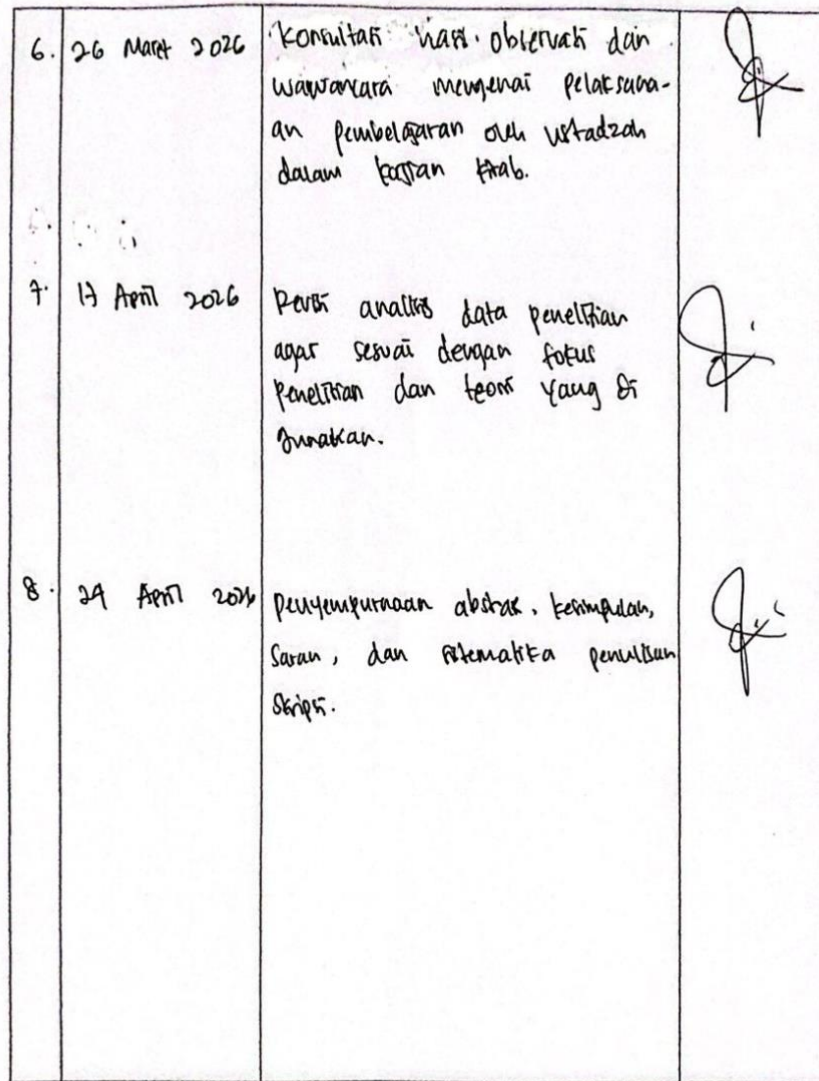 6. 26 Maret 2026 Konsultasi hasil observasi dan
wawancara mengenai pelaksana-
an pembelajaran oleh ustadzah
dalam kajian kitab.
7. 17 April 2026 Revisi analisis data penelitian
agar sesuai dengan fokus
penelitian dan teori yang di
gunakan.
8. 24 April 2026 Penyempurnaan abstrak, kesimpulan,
saran, dan sistematika penulisan
skripsi.